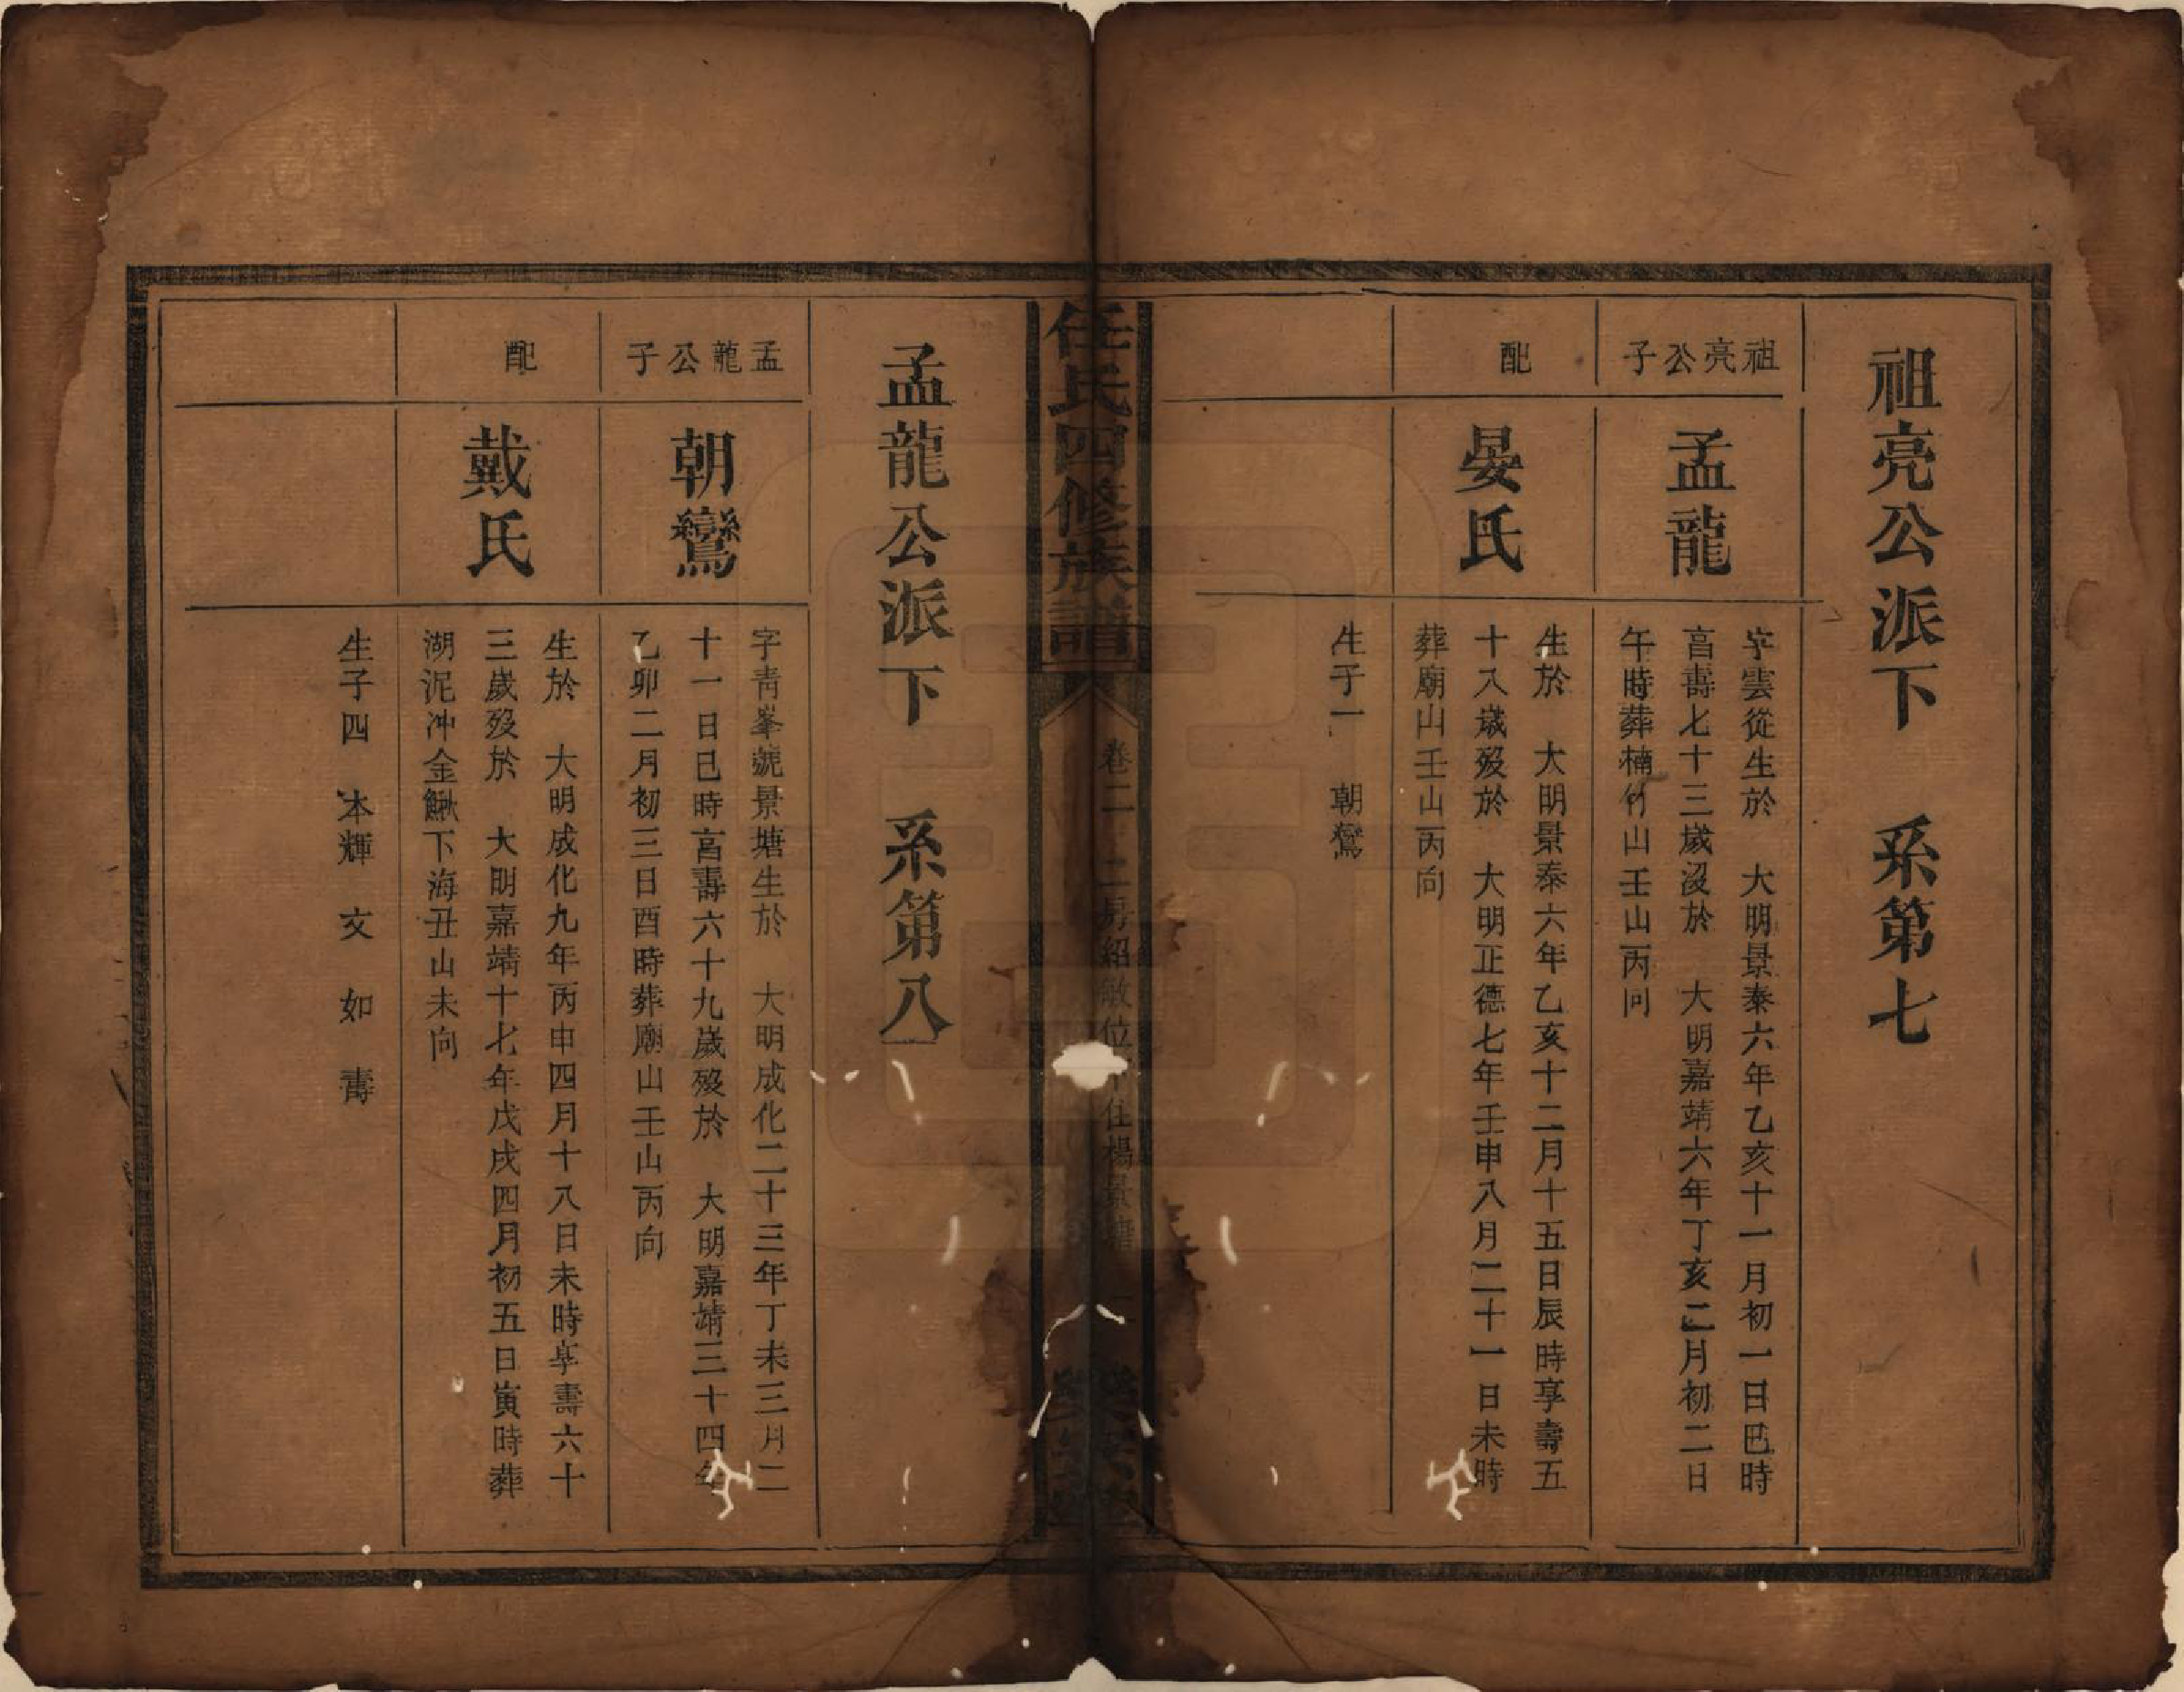 祖亮公派下　系第七
祖亮公子
孟龍
字雲從生於　大明景泰六年乙亥十一月初一日巳時
高壽七十三歲沒於　大明嘉靖六年丁亥二月初二日
午時葬楠竹山壬山丙向
配
晏氏
生於　大明景泰六年乙亥十二月十五日辰時享壽五
十八歲歿於　大明正德七年壬申八月二十一日未時
葬廟山壬山丙向
生子一　朝鸞
任氏四修族譜
卷二　二房紹敏位下住楊景塘
孟龍公派下　系第八
孟龍公子
朝鸞
字青峯號景塘生於　大明成化二十三年丁未三月二
十一日巳時高壽六十九歲歿於　大明嘉靖三十四年
乙卯二月初三日酉時葬廟山壬山丙向
配
戴氏
生於　大明成化九年丙申四月十八日未時享壽六十
三歲歿於　大明嘉靖十七年戊戌四月初五日寅時葬
湖泥冲金鰍下海丑山未向
生子四　本輝　文　如　壽